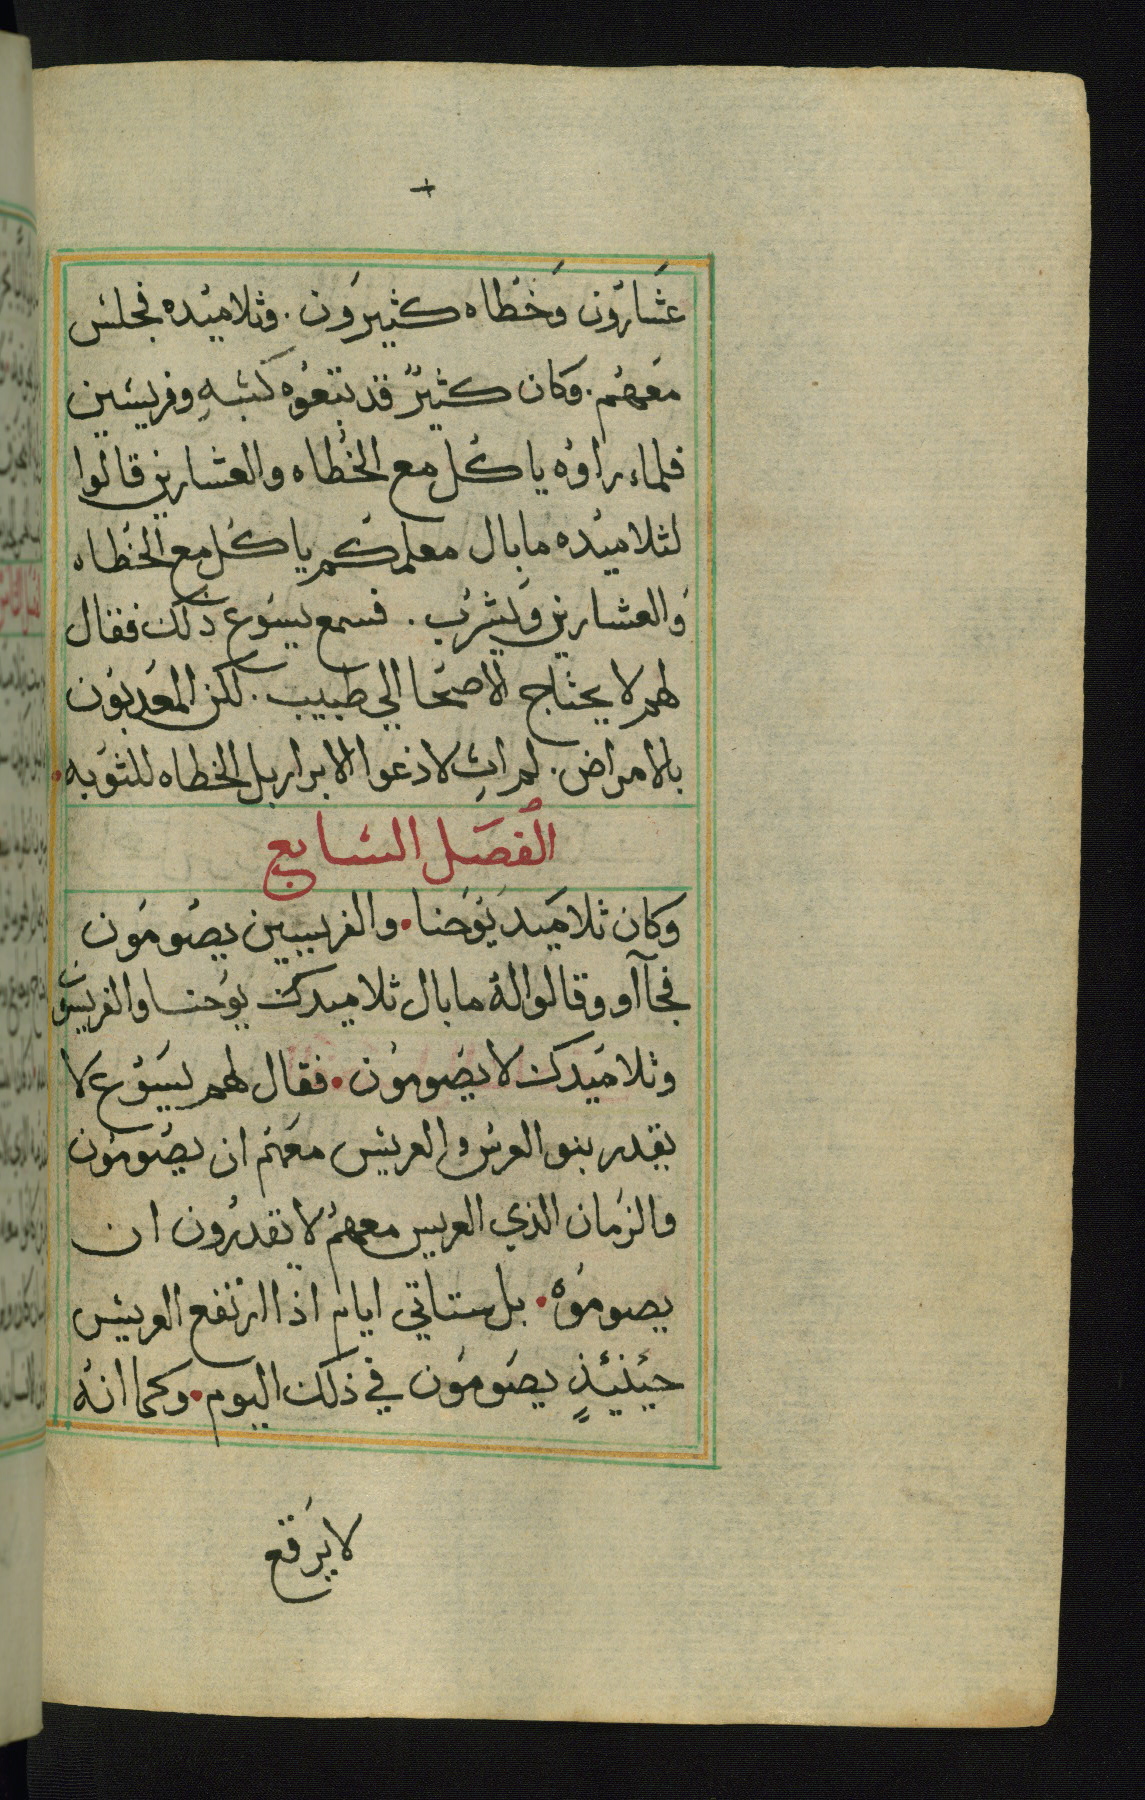 +
عشارون وخطاه كثيرون. وتلاميده فجلس
معهم. وكان كثير قد تبعوه كتبه وفريسين
فلماء راوه ياكل مع الخطاه والعشارين قالوا
لتلاميده مابال معلمكم ياكل مع الخطاه
والعشارين ويشرب. فسمع يسوع ذلك فقال
لهم لا يحتاج الاصحا الي طبيب. لكن المعدبون
بالامراض. لم ات لادعوا الابرار بل الخطاه للتوبه•
الفصل السابع
وكان تلاميد يوحنا• والفريسين يصومون
فجاآو وقالوا له مابال تلاميدك يوحنا والفريسون
وتلاميدك لا يصومون• فقال لهم يسوع لا
يقدر بنو العرس والعريس معهم ان يصومون
والزمان الذي العريس معهم لا يقدرون ان
يصوموه• بل ستاتي ايام اذا ارتفع العريس
حينيئذٍ يصومون في ذلك اليوم• وكما انه
لا يرقع